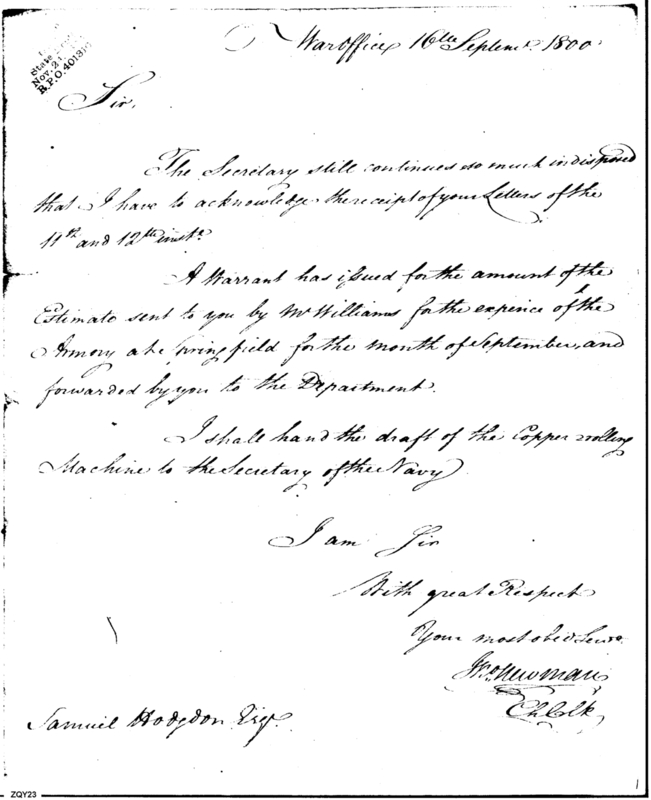 War Office 16th Septemr. 1800.
State
Nov. 21
B.P.O. 4013
Sir,
The Secretary still continues so much indisposed
that I have to acknowledge the receipt of your Letters of the
11th and 12th instt.
A Warrant has issued for the amount of the
Estimate sent to you by Mr Williams for the expence of the
Armory at Springfield for the month of September, and
forwarded by you to the Department.
I shall hand the draft of the Copper rolling
Machine to the Secretary of the Navy
I am Sir
With great Respect
Your most obed Servt.
Jno Newman
Ch Clk
Samuel Hodgdon Esqr.
ZQY23